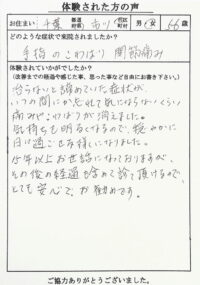 体験された方の声
お住まい 千葉 都道府県 市川 市区町村 男・女 66歳
どのような症状で来院されましたか？
手指のこわばり 関節痛み
体験されていかがでしたか？
(改善までの経過や感じた事、思った事など自由にお書き下さい。)
治らないと諦めていた症状が、
いつの間にか忘れて気にならないくらい
痛みやこわばりが消えました。
気持ちも明るくなるので、穏やかに
日々過ごせる様になりました。
15年以上お世話になっておりますが、
その後の経過も含めて診て頂けるので
とても安心で、お勧めです。
ご協力ありがとうございました。